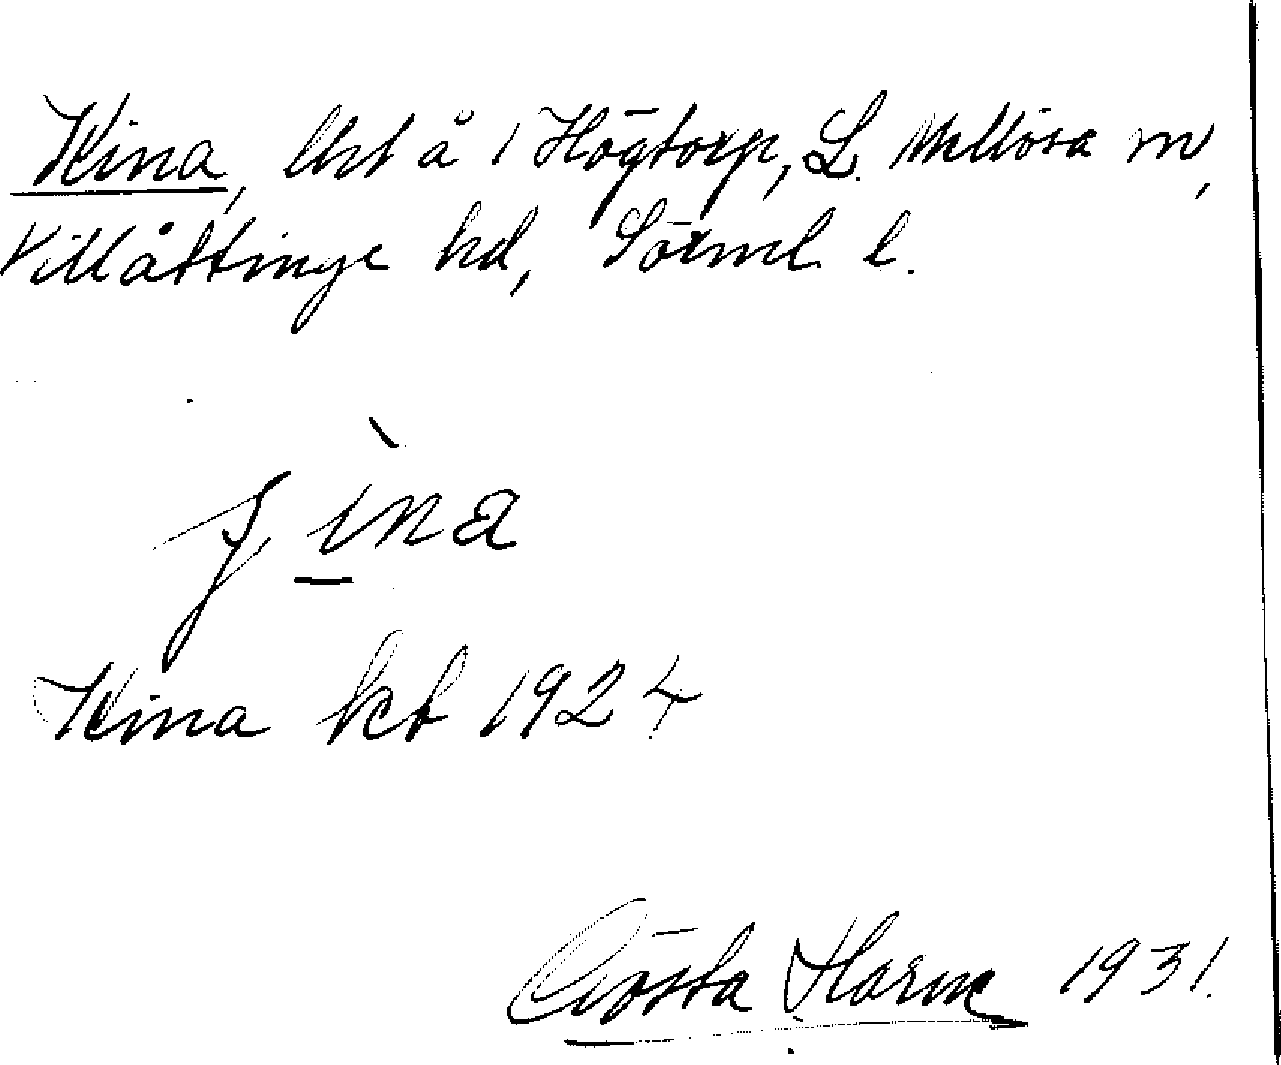 Kina, lht å 1 Högtorp, L. Mellösa sn,
Villåttinge hd, Sörml. l.
ina
Kina kbt 1924
Gösta Harne 1931.